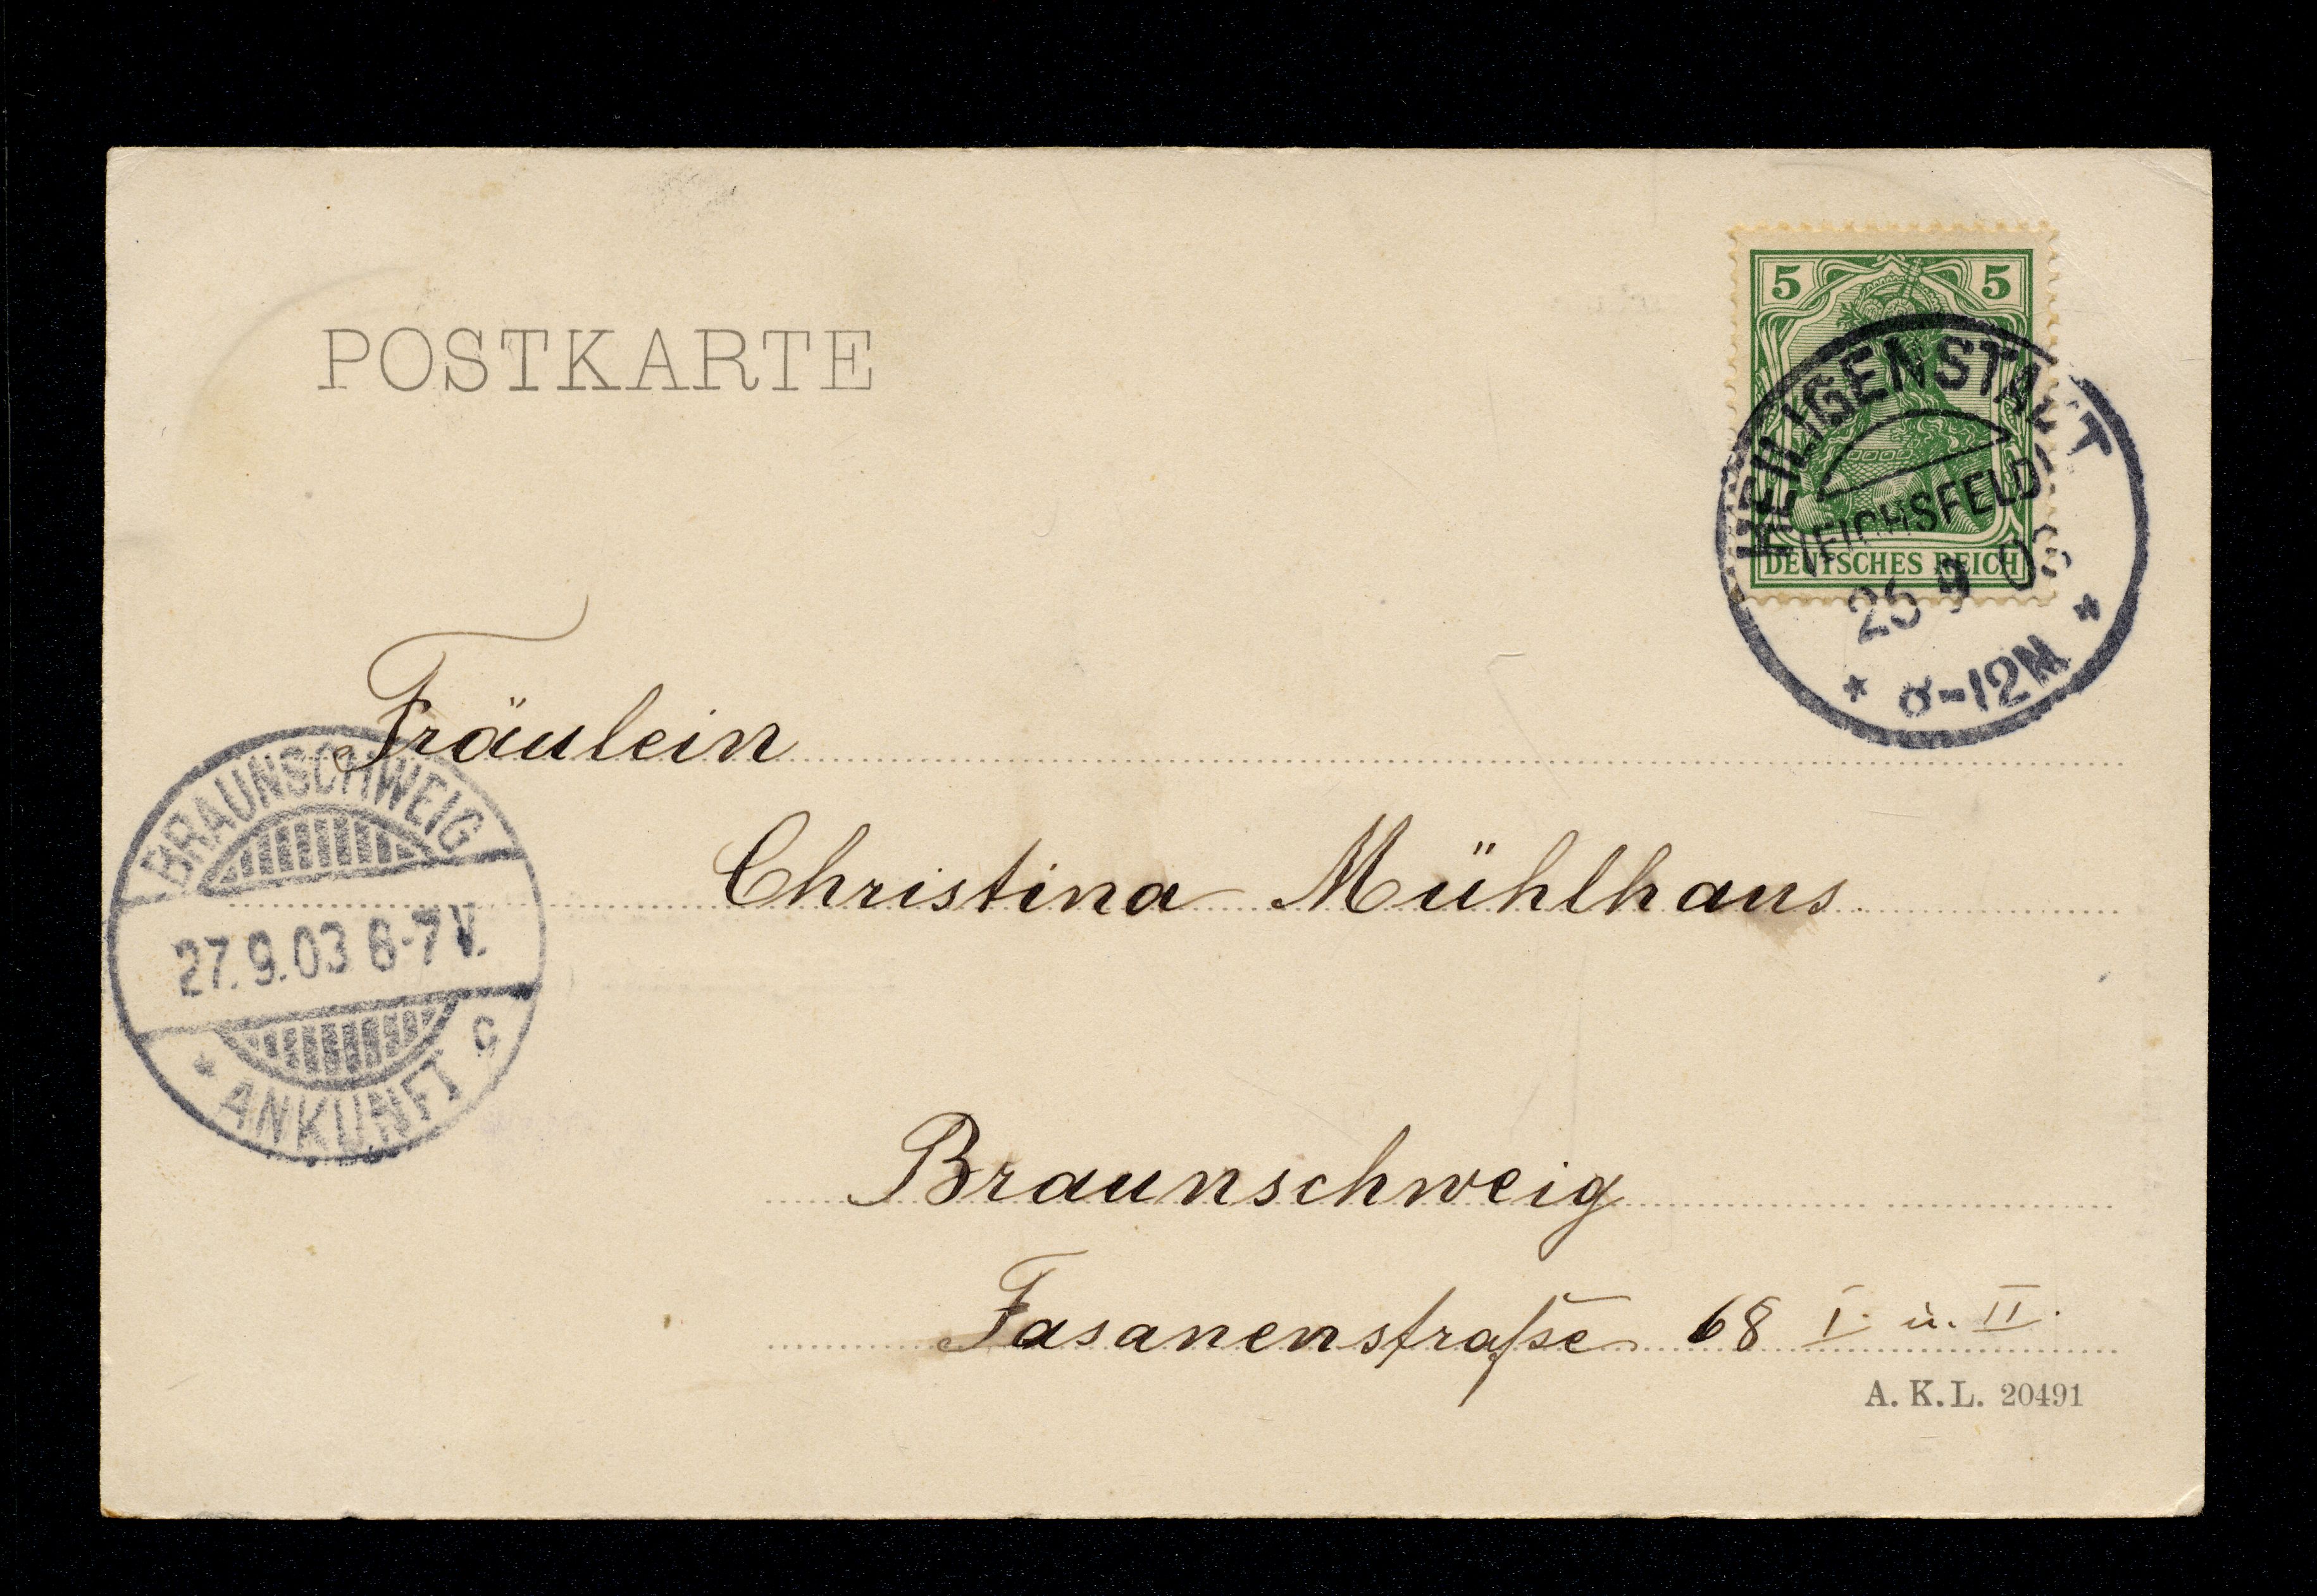 POSTKARTE
5 5
DEUTSCHES REICH
HEILIGENSTADT
(EICHSFELD)
9 03
-12N
Fräulein
Christina Mühlhaus
BRAUNSCHWEIG
27.9.03 6-7 V.
* ANKUNFT c
Braunschweig
Fasanenstraße 68 I. u. II.
A. K. L. 20491